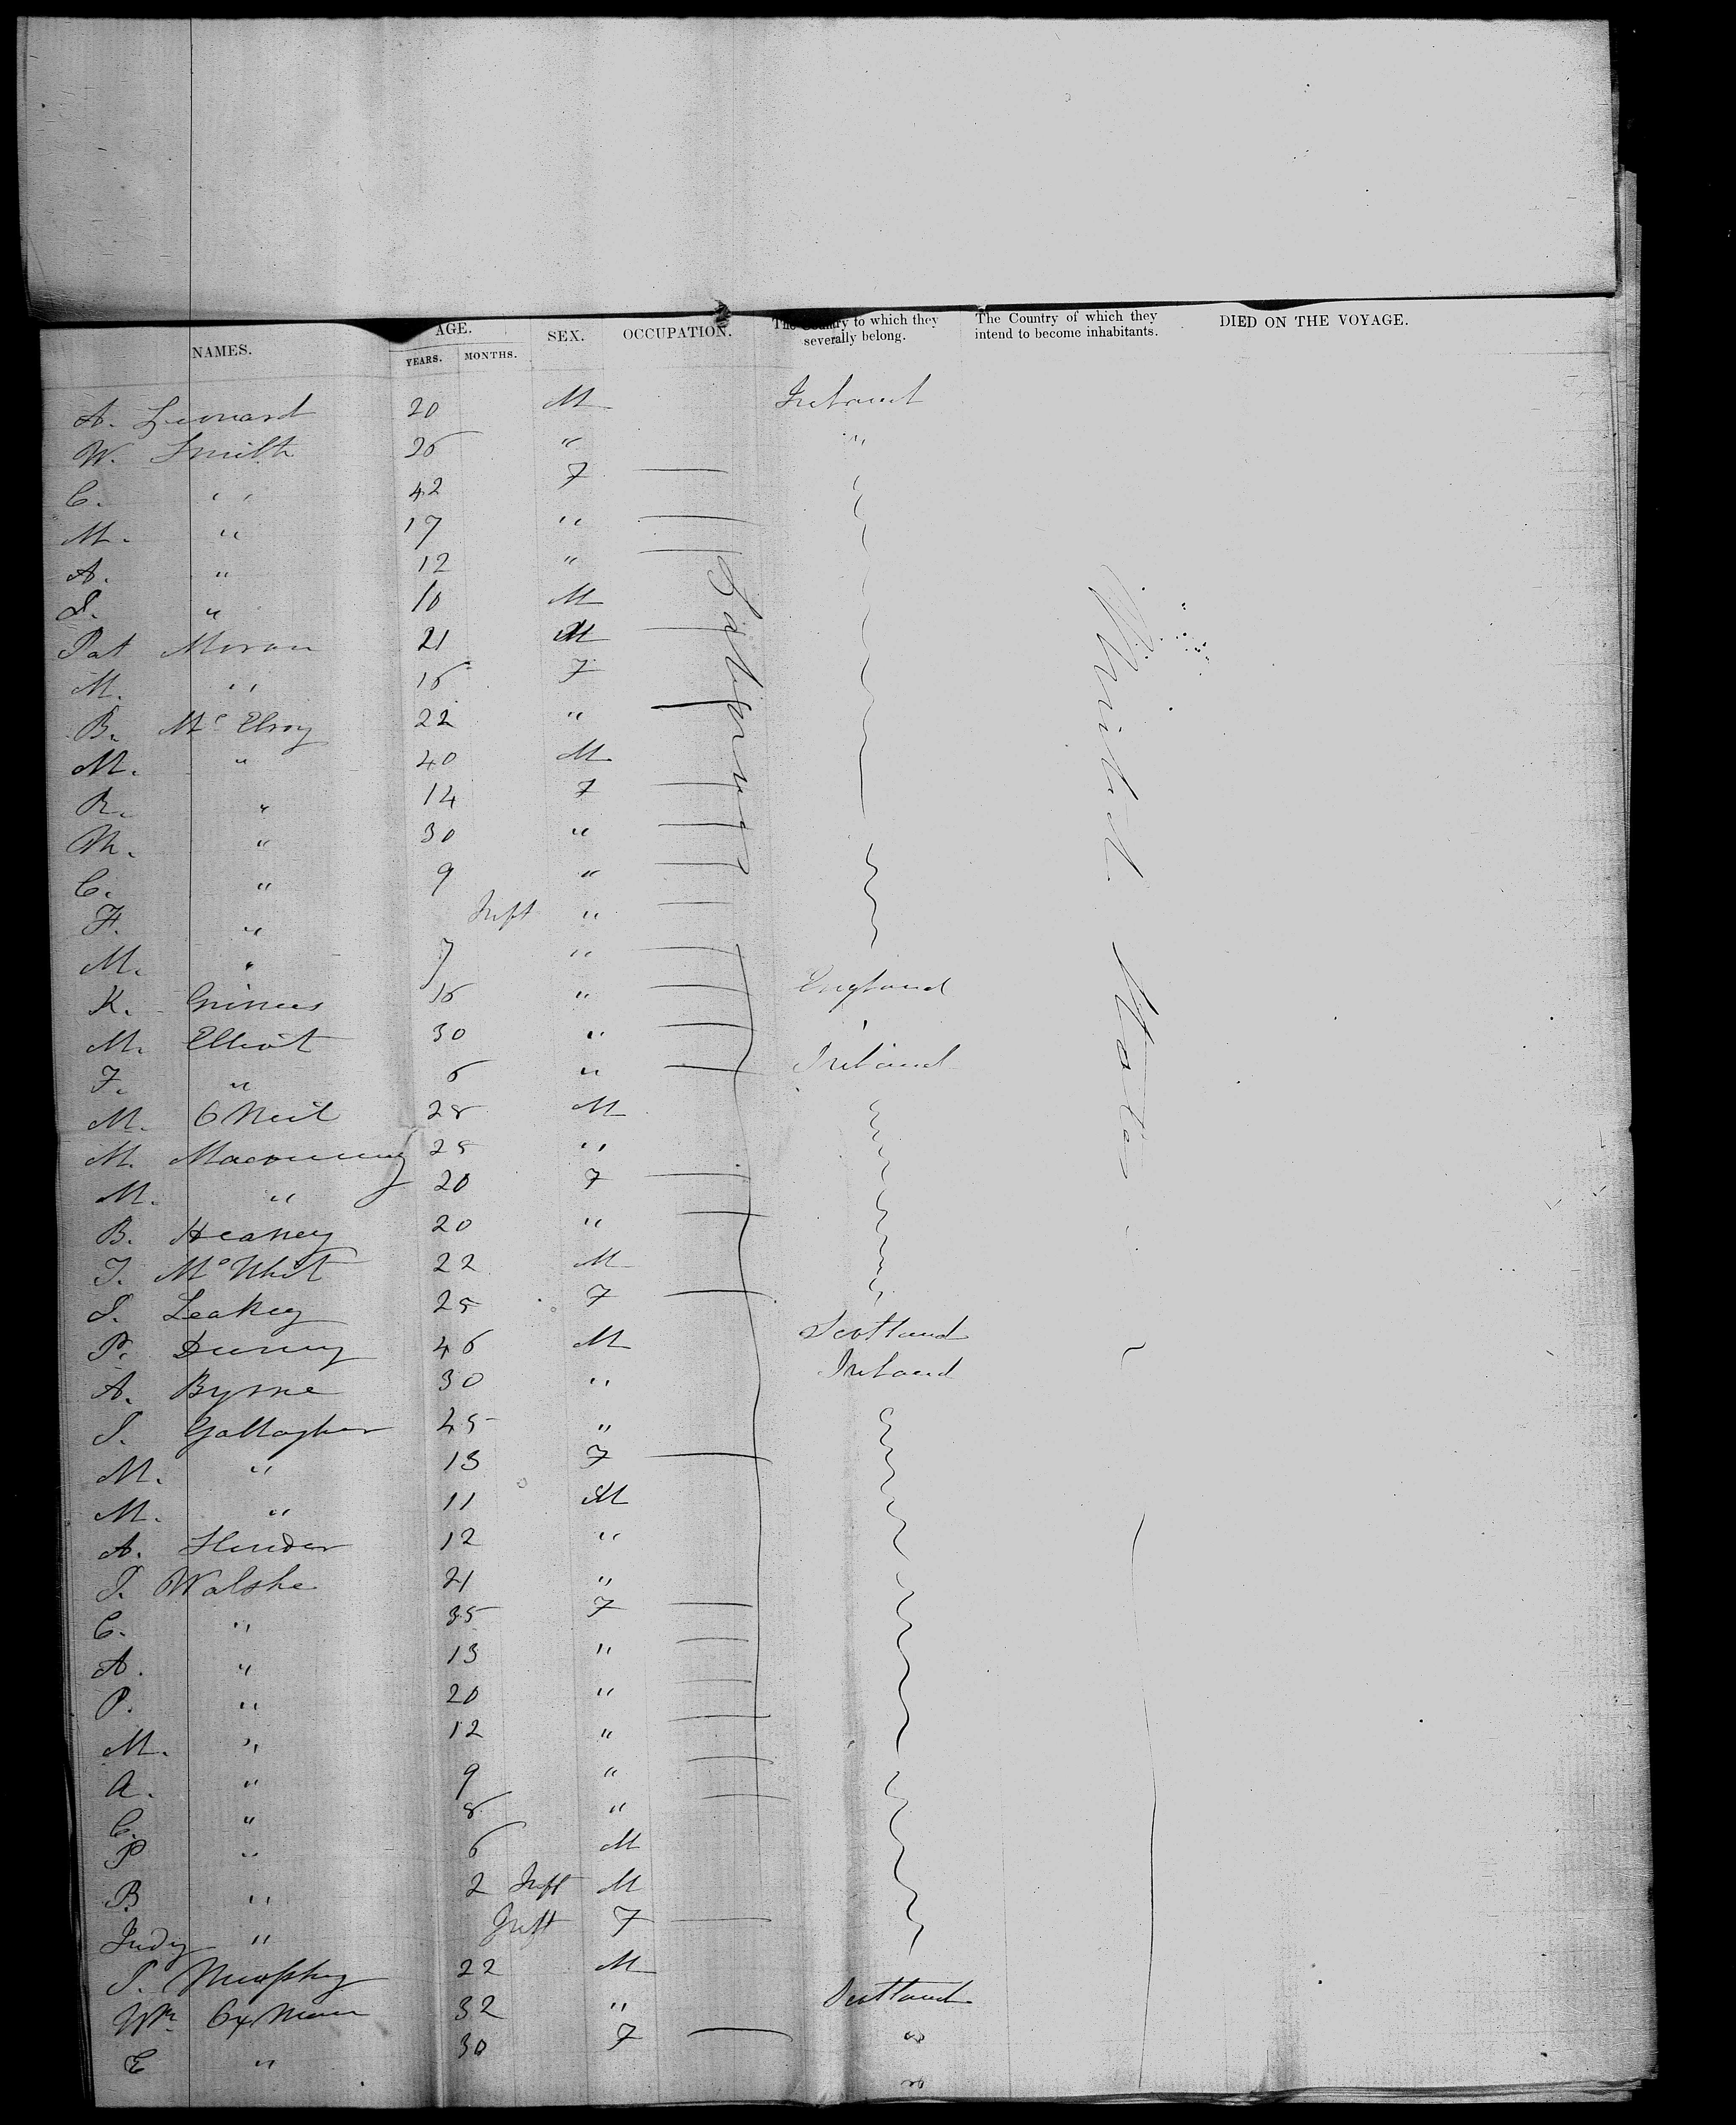 NAMES. AGE. YEARS. MONTHS. SEX. OCCUPATION. The Country to which they severally belong. The Country of which they intend to become inhabitants. DIED ON THE VOYAGE.
A. Leonard 20 M Ireland
W. Smith 26 " "
C. " 42 F
M. " 17 "
A. " 12 "
S. " 10 M
Pat Moran 21 M
M. " 16 F
B. Mc Elroy 22 "
M. " 40 M
R. " 14 F
M. " 30 "
C. " 9 "
F. " Inft "
M. " 7 "
K. Grimes 16 " England
M. Elliot 30 "
F. " 6 " Ireland
M. O Neil 28 M
M. 25 "
M. " 20 F
B. Heaney 20 "
T. 22 M
S. Leahey 25 F
P. 46 M Scotland
A. Byrne 30 " Ireland
S. Gallagher 45 "
M. " 13 F
M. " 11 M
A. 12 "
T. Walshe 21 "
C. " 35 F
A. " 13 "
P. " 20 "
M. " 12 "
A. " 9 "
C. " 8 "
P " 6 M
B. " 2 Inft M
Judy " Inft F
S. Murphy 22 M
Wm. 32 " Scotland
E " 30 F "
Labourer
United States